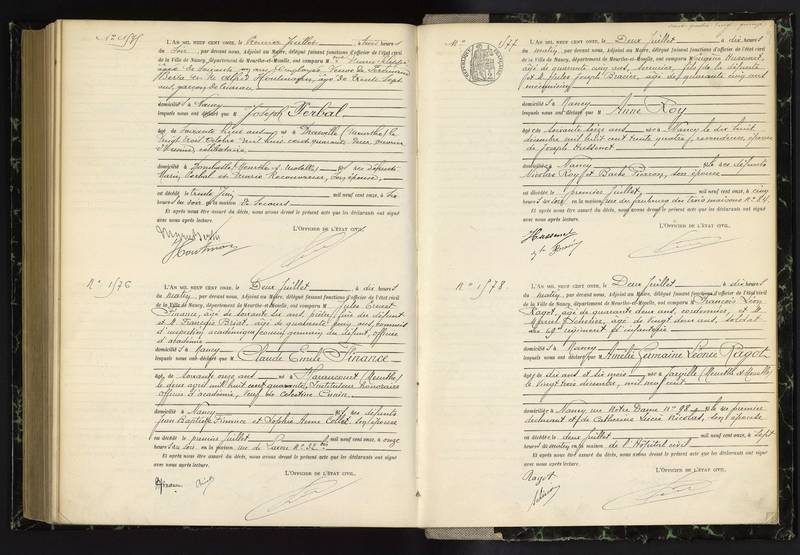 N° 1575
L'AN MIL NEUF CENT ONZE, le Premier Juillet à trois heures
du Soir, par devant nous, Adjoint au Maire, délégué faisant fonctions d'officier de l'état civil
de la Ville de Nancy, département de Meurthe-et-Moselle, ont comparu M
âgée de soixante ans, employée, Veuve de Ferdinand
Bertz et M Alfred Houtmann, âgé de trente sept
ans, garçon de bureau
domiciliés à Nancy
lesquels nous ont déclaré que M Joseph Perbal
âgé de soixante ans né à (Meurthe) le
vingt trois octobre mil huit cent quarante
domicilié à (Meurthe & Moselle), fils des défunts
Marie Perbal et Marie son épouse,
est décédé, le trente Juin mil neuf cent onze, à six
heures du soir, en la maison de Secours
Et après nous être assuré du décès, nous avons dressé le présent acte que les déclarants ont signé
avec nous après lecture.
L'OFFICIER DE L'ÉTAT CIVIL,
Houtmann
N° 1576
L'AN MIL NEUF CENT ONZE, le Deux Juillet, à dix heures
du matin, par devant nous, Adjoint au Maire, délégué faisant fonctions d'officier de l'état civil
de la Ville de Nancy, département de Meurthe-et-Moselle, ont comparu M Jules Ernest
Finance, âgé de soixante six ans, frère du défunt
et M. François Briot, âgé de quarante cinq ans, commis
d'inspection académique, cousin germain du défunt, officier
d'académie
domiciliés à Nancy
lesquels nous ont déclaré que M Claude Emile Finance
âgé de soixante onze ans né à Haraucourt (Meurthe)
le deux avril mil huit cent quarante, Instituteur honoraire
officier d'académie, Veuf de Célestine Cunin
domicilié à Nancy fils des défunts
Jean Baptiste Finance et Sophie Anne Collet, son épouse
est décédé le premier juillet mil neuf cent onze, à onze
heures du soir, en la maison rue de Saxon N° 32 bis
Et après nous être assuré du décès, nous avons dressé le présent acte que les déclarants ont signé
avec nous après lecture.
L'OFFICIER DE L'ÉTAT CIVIL,
Finance Briot
N° 1577
L'AN MIL NEUF CENT ONZE, le Deux juillet, à dix heures
du matin, par devant nous, Adjoint au Maire, délégué faisant fonctions d'officier de l'état civil
de la Ville de Nancy, département de Meurthe-et-Moselle, ont comparu M Eugène Hussenet,
âgé de quarante cinq ans, serrurier, fils de la défunte
et M. Jules Joseph Brasier, âgé de quarante cinq ans
mécanicien
domiciliés à Nancy
lesquels nous ont déclaré que M Anne Roy
âgée de soixante seize ans née à Nancy le dix huit
décembre mil huit cent trente quatre, revendeuse, épouse
de Joseph Hussenet
domiciliée à Nancy fille des défunts
Nicolas Roy et Barbe Pierron, son épouse
est décédée le premier juillet mil neuf cent onze, à cinq
heures du soir, en la maison rue du faubourg des trois maisons N° 84.
Et après nous être assuré du décès, nous avons dressé le présent acte que les déclarants ont signé
avec nous après lecture.
L'OFFICIER DE L'ÉTAT CIVIL,
Hussenet
N° 1578
L'AN MIL NEUF CENT ONZE, le Deux juillet, à dix heures
du matin, par devant nous, Adjoint au Maire, délégué faisant fonctions d'officier de l'état civil
de la Ville de Nancy, département de Meurthe-et-Moselle, ont comparu M François Léon
Ragot, âgé de quarante deux ans, cordonnier, et M.
Marcel âgé de vingt deux ans, soldat
au 69e régiment d'infanterie
domiciliés à Nancy
lesquels nous ont déclaré que M Amélie Germaine Léonie Ragot
âgée de dix ans et dix mois née à Jarville (Meurthe & Moselle)
le vingt trois décembre, mil neuf cent
domiciliée à Nancy rue Notre Dame N° 98 fille de premier
déclarant et de Catherine Lucie Nicolas, son épouse
est décédée le deux juillet mil neuf cent onze, à sept
heures du matin en la maison de l'Hôpital civil
Et après nous être assuré du décès, nous avons dressé le présent acte que les déclarants ont signé
avec nous après lecture.
L'OFFICIER DE L'ÉTAT CIVIL,
Ragot